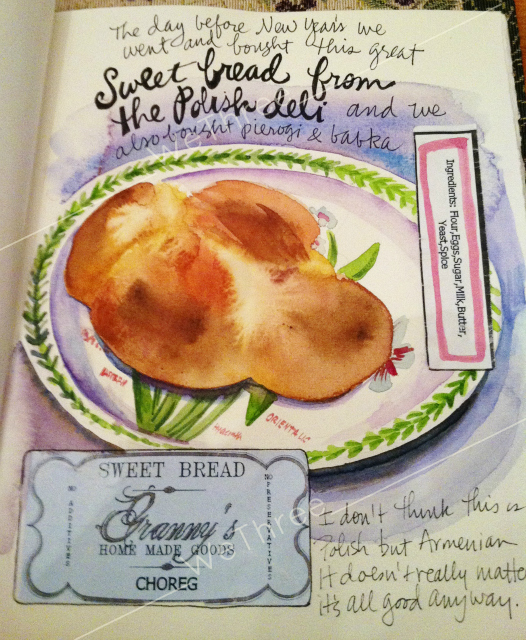 The day before New Years we
went and bought this great
Sweet bread from
the Polish deli and we
also bought pierogi & babka
Ingredients: Flour,Eggs,Sugar,Milk,Butter,
Yeast,Spice
ORIENTALE
SWEET BREAD
NO ADDITIVES
Granny's
NO PRESERVATIVES
HOME MADE GOODS
CHOREG
I don't think this is
Polish but Armenian
It doesn't really matte
it's all good anyway.
WeThree